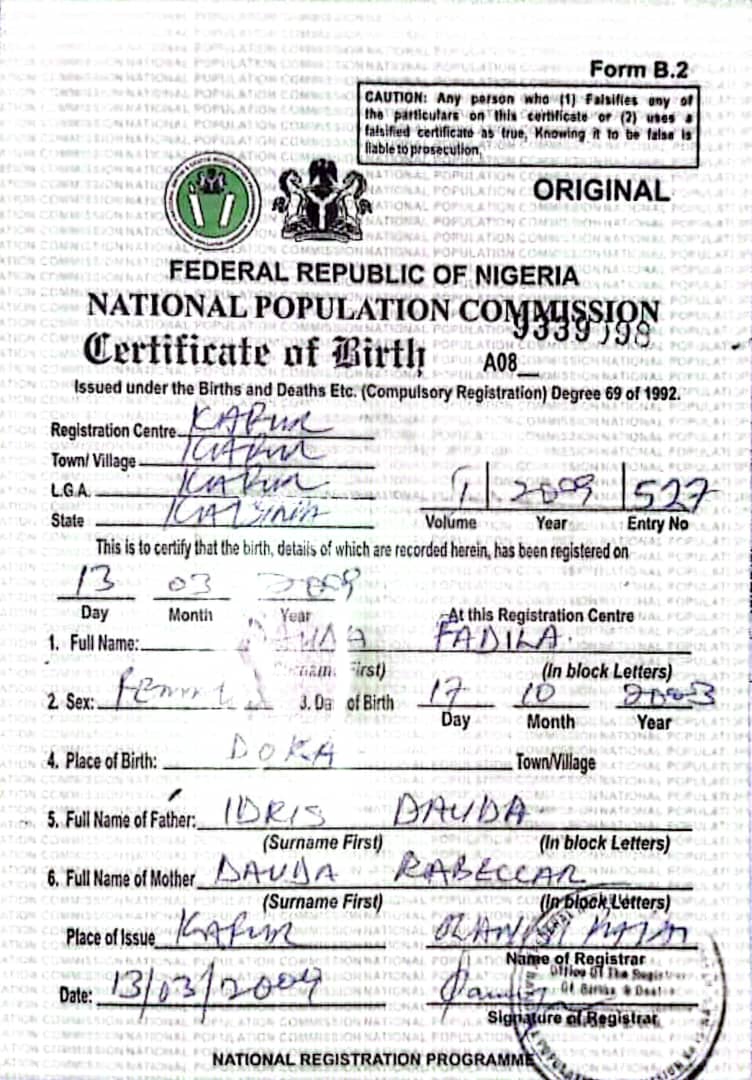 Form B.2
CAUTION: Any person who (1) Falsifies any of
the particulars on this certificate or (2) uses a
falsified certificate as true, Knowing it to be false is
liable to prosecution.
ORIGINAL
FEDERAL REPUBLIC OF NIGERIA
NATIONAL POPULATION COMMISSION
Certificate of Birth A08
Issued under the Births and Deaths Etc. (Compulsory Registration) Degree 69 of 1992.
Registration Centre KAFUR
Town/ Village KAFUR
L.G.A. KAFUR
State KATSINA
1 2009 527
Volume Year Entry No
This is to certify that the birth, details of which are recorded herein, has been registered on
13 03 2009
Day Month Year At this Registration Centre
1. Full Name: DAUDA FADILA
(Surname First) (In block Letters)
2. Sex: Female 3. Da of Birth 17 10 2003
Day Month Year
4. Place of Birth: DOKA Town/Village
5. Full Name of Father: IDRIS DAUDA
(Surname First) (In block Letters)
6. Full Name of Mother DAUDA RABECCAR
(Surname First) (In block Letters)
Place of Issue KAFUR
Name of Registrar
Office Of The Registrar
Of Births & Deaths
Date: 13/03/2009
Signature of Registrar
NATIONAL REGISTRATION PROGRAMME